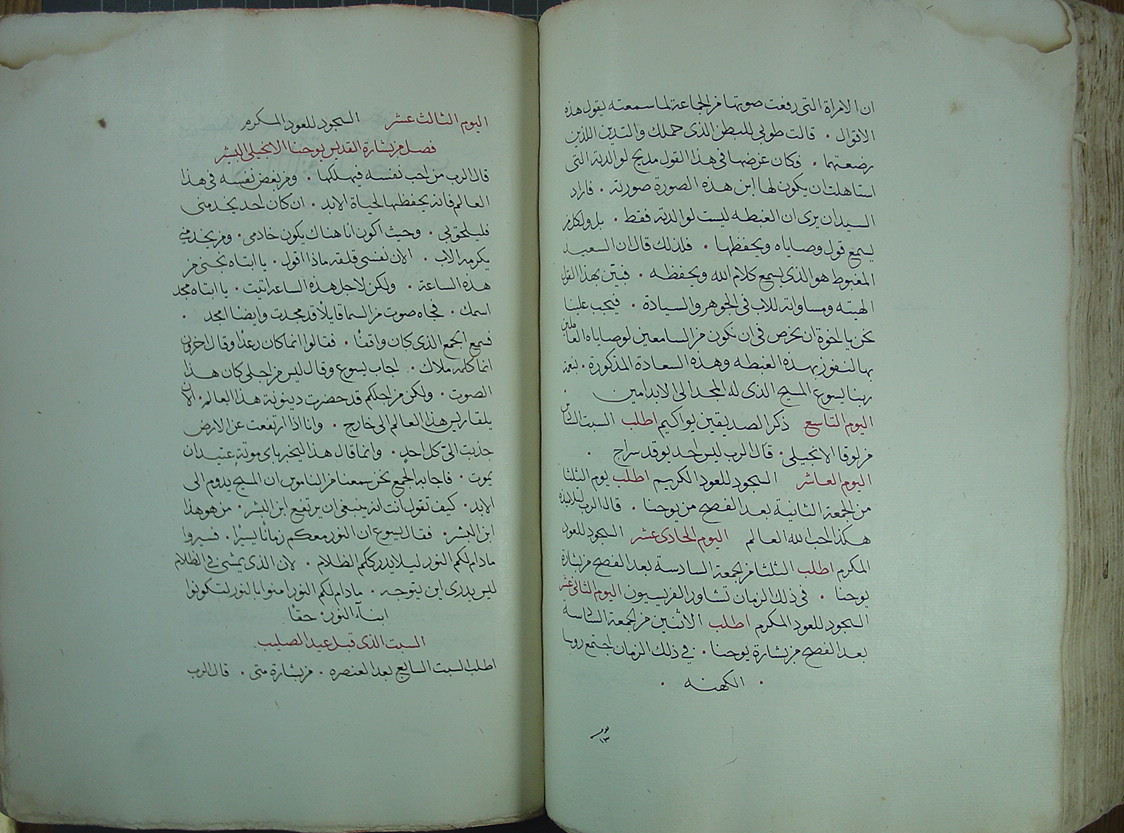 ان الامراة التى رفعت صوتها من الجماعة لما سمعته يقول هذه
الاقوال . قالت طوبى للبطن الذى حملك والثديين اللذين
رضعتهما . فكان غرضها فى هذا القول مديح لوالدته التى
استاهلت ان يكون لها ابن هذه الصورة صورته . فاراد
السيد ان يرى ان الغبطه ليست لوالدته فقط . بل ولكل من
يسمع قول وصاياه ويحفظها . فلذلك قال ان السعيد
المغبوط هو الذى يسمع كلام الله ويحفظه . فبين بهذا القول
الهيته ومساواته للاب فى الجوهر والسيادة . فيجب علينا
نحن يا اخوة ان نحرص فى ان نكون من السامعين لوصاياه العاملين
بها لنفوز بهذه الغبطه وهذه السعادة المذكورة . بنعمة
ربنا يسوع المسيح الذى له المجد الى الابد امين
اليوم التاسع ذكر الصديقين يواكيم اطلب السبت السادس
من لوقا الانجيلى . قال الرب ليس احد يوقد سراج .
اليوم العاشر السجود للعود الكريم اطلب يوم الثلثا
من الجمعة الثانية بعد الفصح من يوحنا . قال الرب لتلاميذه
هكذا احب الله العالم اليوم الحادى عشر السجود للعود
المكرم اطلب الثلثا من الجمعة السادسة بعد الفصح من بشارة
يوحنا . فى ذلك الزمان تشاور الفريسيون اليوم الثانى عشر
السجود للعود المكرم اطلب الاثنين من الجمعة السادسة
بعد الفصح من بشارة يوحنا . فى ذلك الزمان اجتمع روسا
. الكهنه .
اليوم الثالث عشر السجود للعود المكرم
فصل من بشارة القديس يوحنا الانجيلى البشير
قال الرب من احب نفسه فيهلكها . ومن بغض نفسه فى هذا
العالم فانه يحفظها لحياة الابد . ان كان احد يخدمنى
فليلحق بى . وحيث اكون انا هناك يكون خادمى . ومن يخدمنى
يكرمه الاب . الان نفسى قلقه ماذا اقول . يا ابتاه نجنى من
هذه الساعة . ولكن لاجل هذه الساعة اتيت . يا ابتاه مجد
اسمك . فجاه صوت من السما قايلا قد مجدت وايضا امجد .
فسمع الجمع الذى كان واقفا . فقالوا انما كان رعدا وقال اخرون
انما كلمه ملاك . اجاب يسوع وقال ليس من اجلى كان هذا
الصوت . ولكن من اجلكم قد حضرت دينونة هذا العالم . الان
يلقا ريس هذا العالم الى خارج . وانا اذا ارتفعت عن الارض
جذبت الى كل احد . وانما قال هذا ليخبر باى موتة عتيد ان
يموت . فاجابه الجمع نحن سمعنا من الناموس ان المسيح يدوم الى
الابد . كيف تقول انت انه ينبغى ان يرتفع ابن البشر . من هو هذا
ابن البشر . فقال يسوع ان النور معكم زمانا يسيرا . فسيروا
ما دام لكم النور ليلا يدرككم الظلام . لان الذى يمشى فى الظلام
ليس يدرى اين يتوجه . ما دام لكم النور امنوا بالنور لتكونوا
ابنآء النور . حقا
السبت الذى قبل عيد الصليب
اطلب السبت السابع بعد العنصره . من بشارة متى . قال الرب